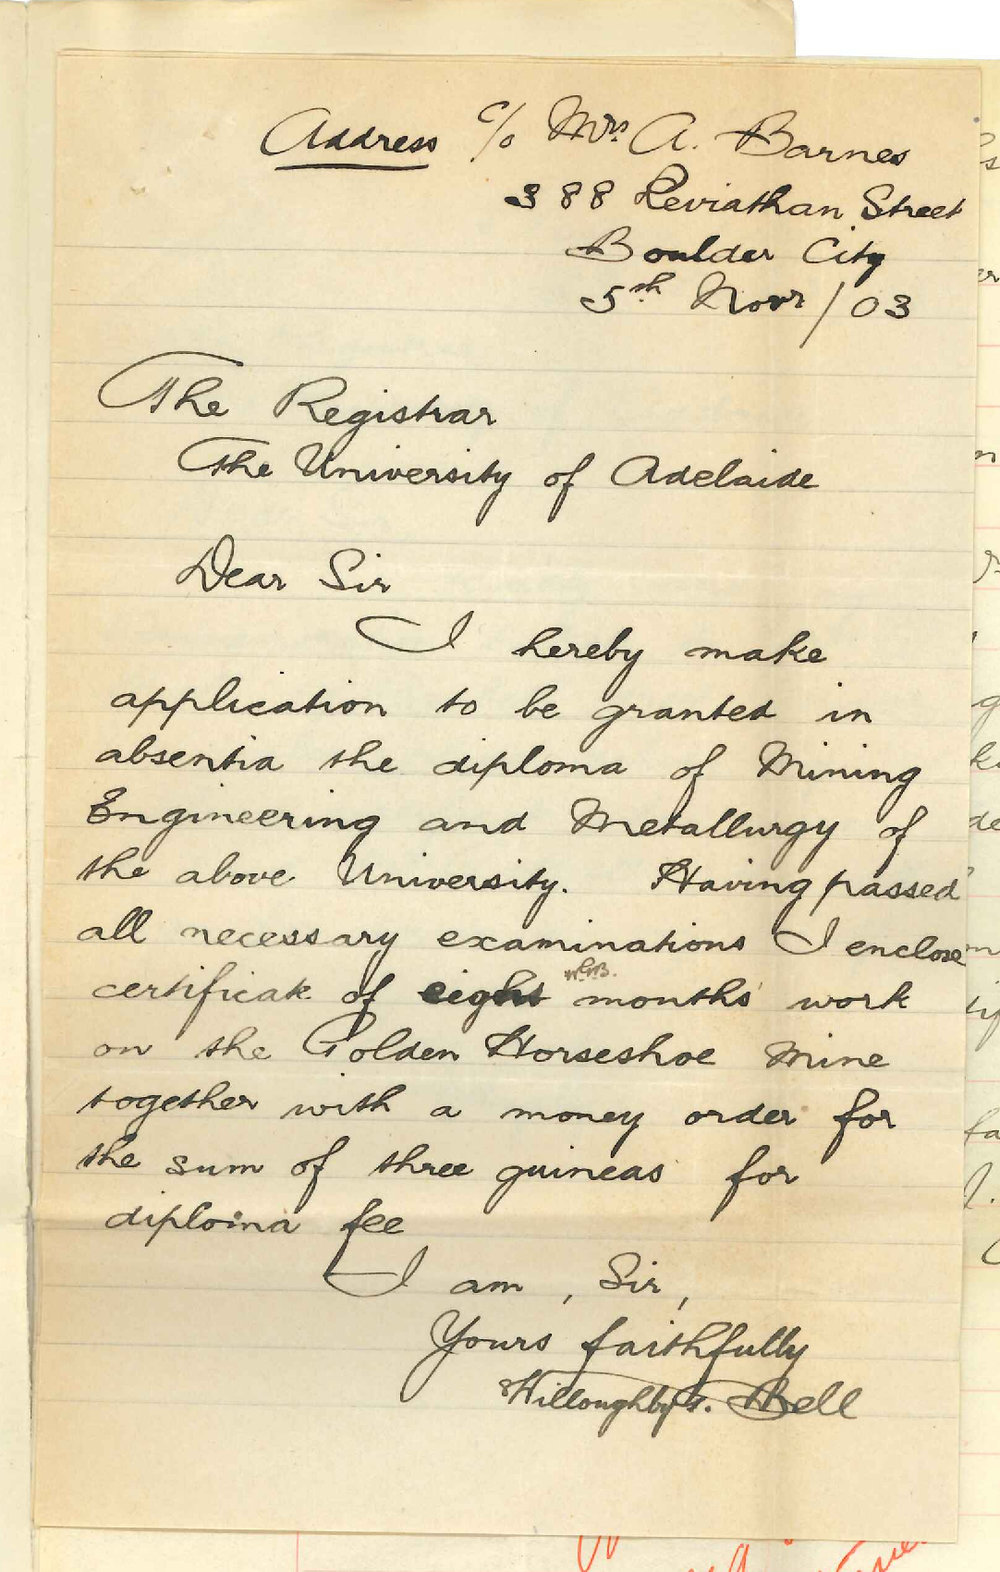 Address c/o Mrs. A. Barnes
388 Leviathan Street
Boulder City
5th Novr / 03
The Registrar
The University of Adelaide
Dear Sir
I hereby make
application to be granted in
absentia the diploma of Mining
Engineering and Metallurgy of
the above University. Having passed
all necessary examinations I enclose
certificate of eight months' work
on the Golden Horseshoe Mine
together with a money order for
the sum of three guineas for
diploma fee
I am, Sir,
Yours faithfully
Willoughby G. Bell